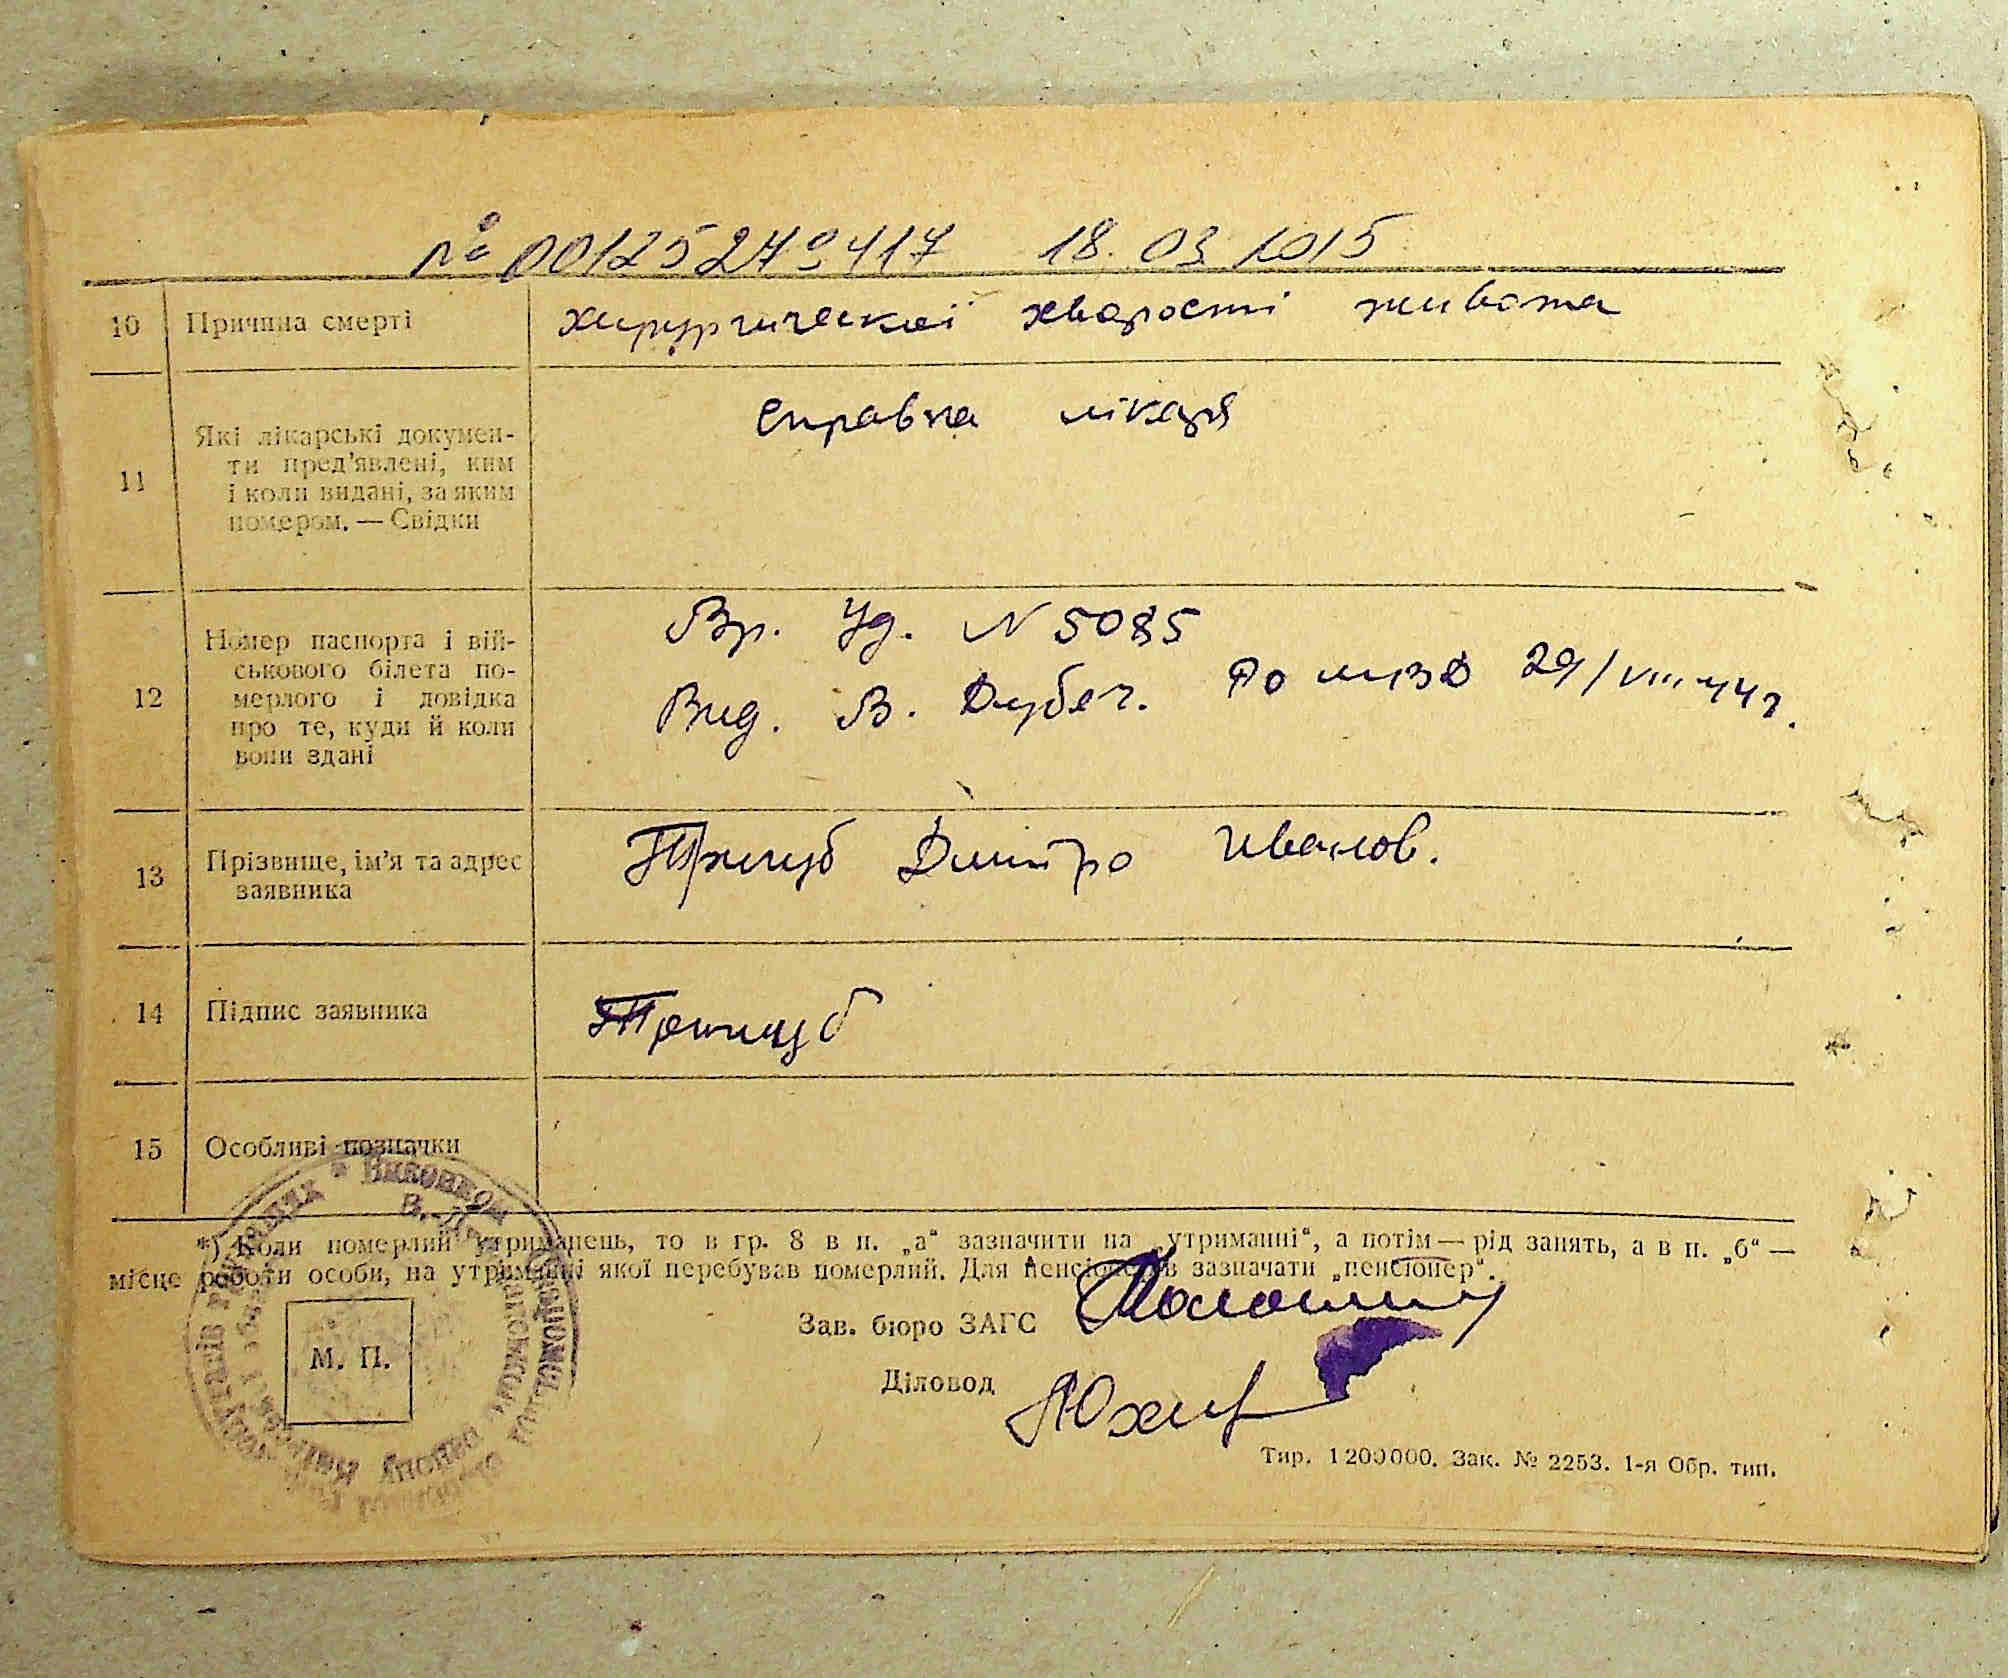 № 00125279417 18.03.2015
10 Причина смерті хирургическої хворості живота
11 Які лікарські докумен-
ти пред'явлені, ким
і коли видані, за яким
номером. — Свідки
справка лікаря
12 Номер паспорта і вій-
ськового білета по-
мерлого і довідка
про те, куди й коли
вони здані
Вр. Уд. N 5085
Вид. В. Дубеч. РО НКВД 29/VIII 44 г.
13 Прізвище, ім'я та адрес
заявника
Дмитро Иванов.
14 Підпис заявника
15 Особливі позначки
*) Коли померлий утриманець, то в гр. 8 в п. „а“ зазначити на „утриманні“, а потім — рід занять, а в п. „б“ —
місце роботи особи, на утриманні якої перебував померлий. Для пенсіонерів зазначати „пенсіонер“.
Зав. бюро ЗАГС
М. П.
Діловод
Тир. 1 200 000. Зак. № 2253. 1-я Обр. тип.